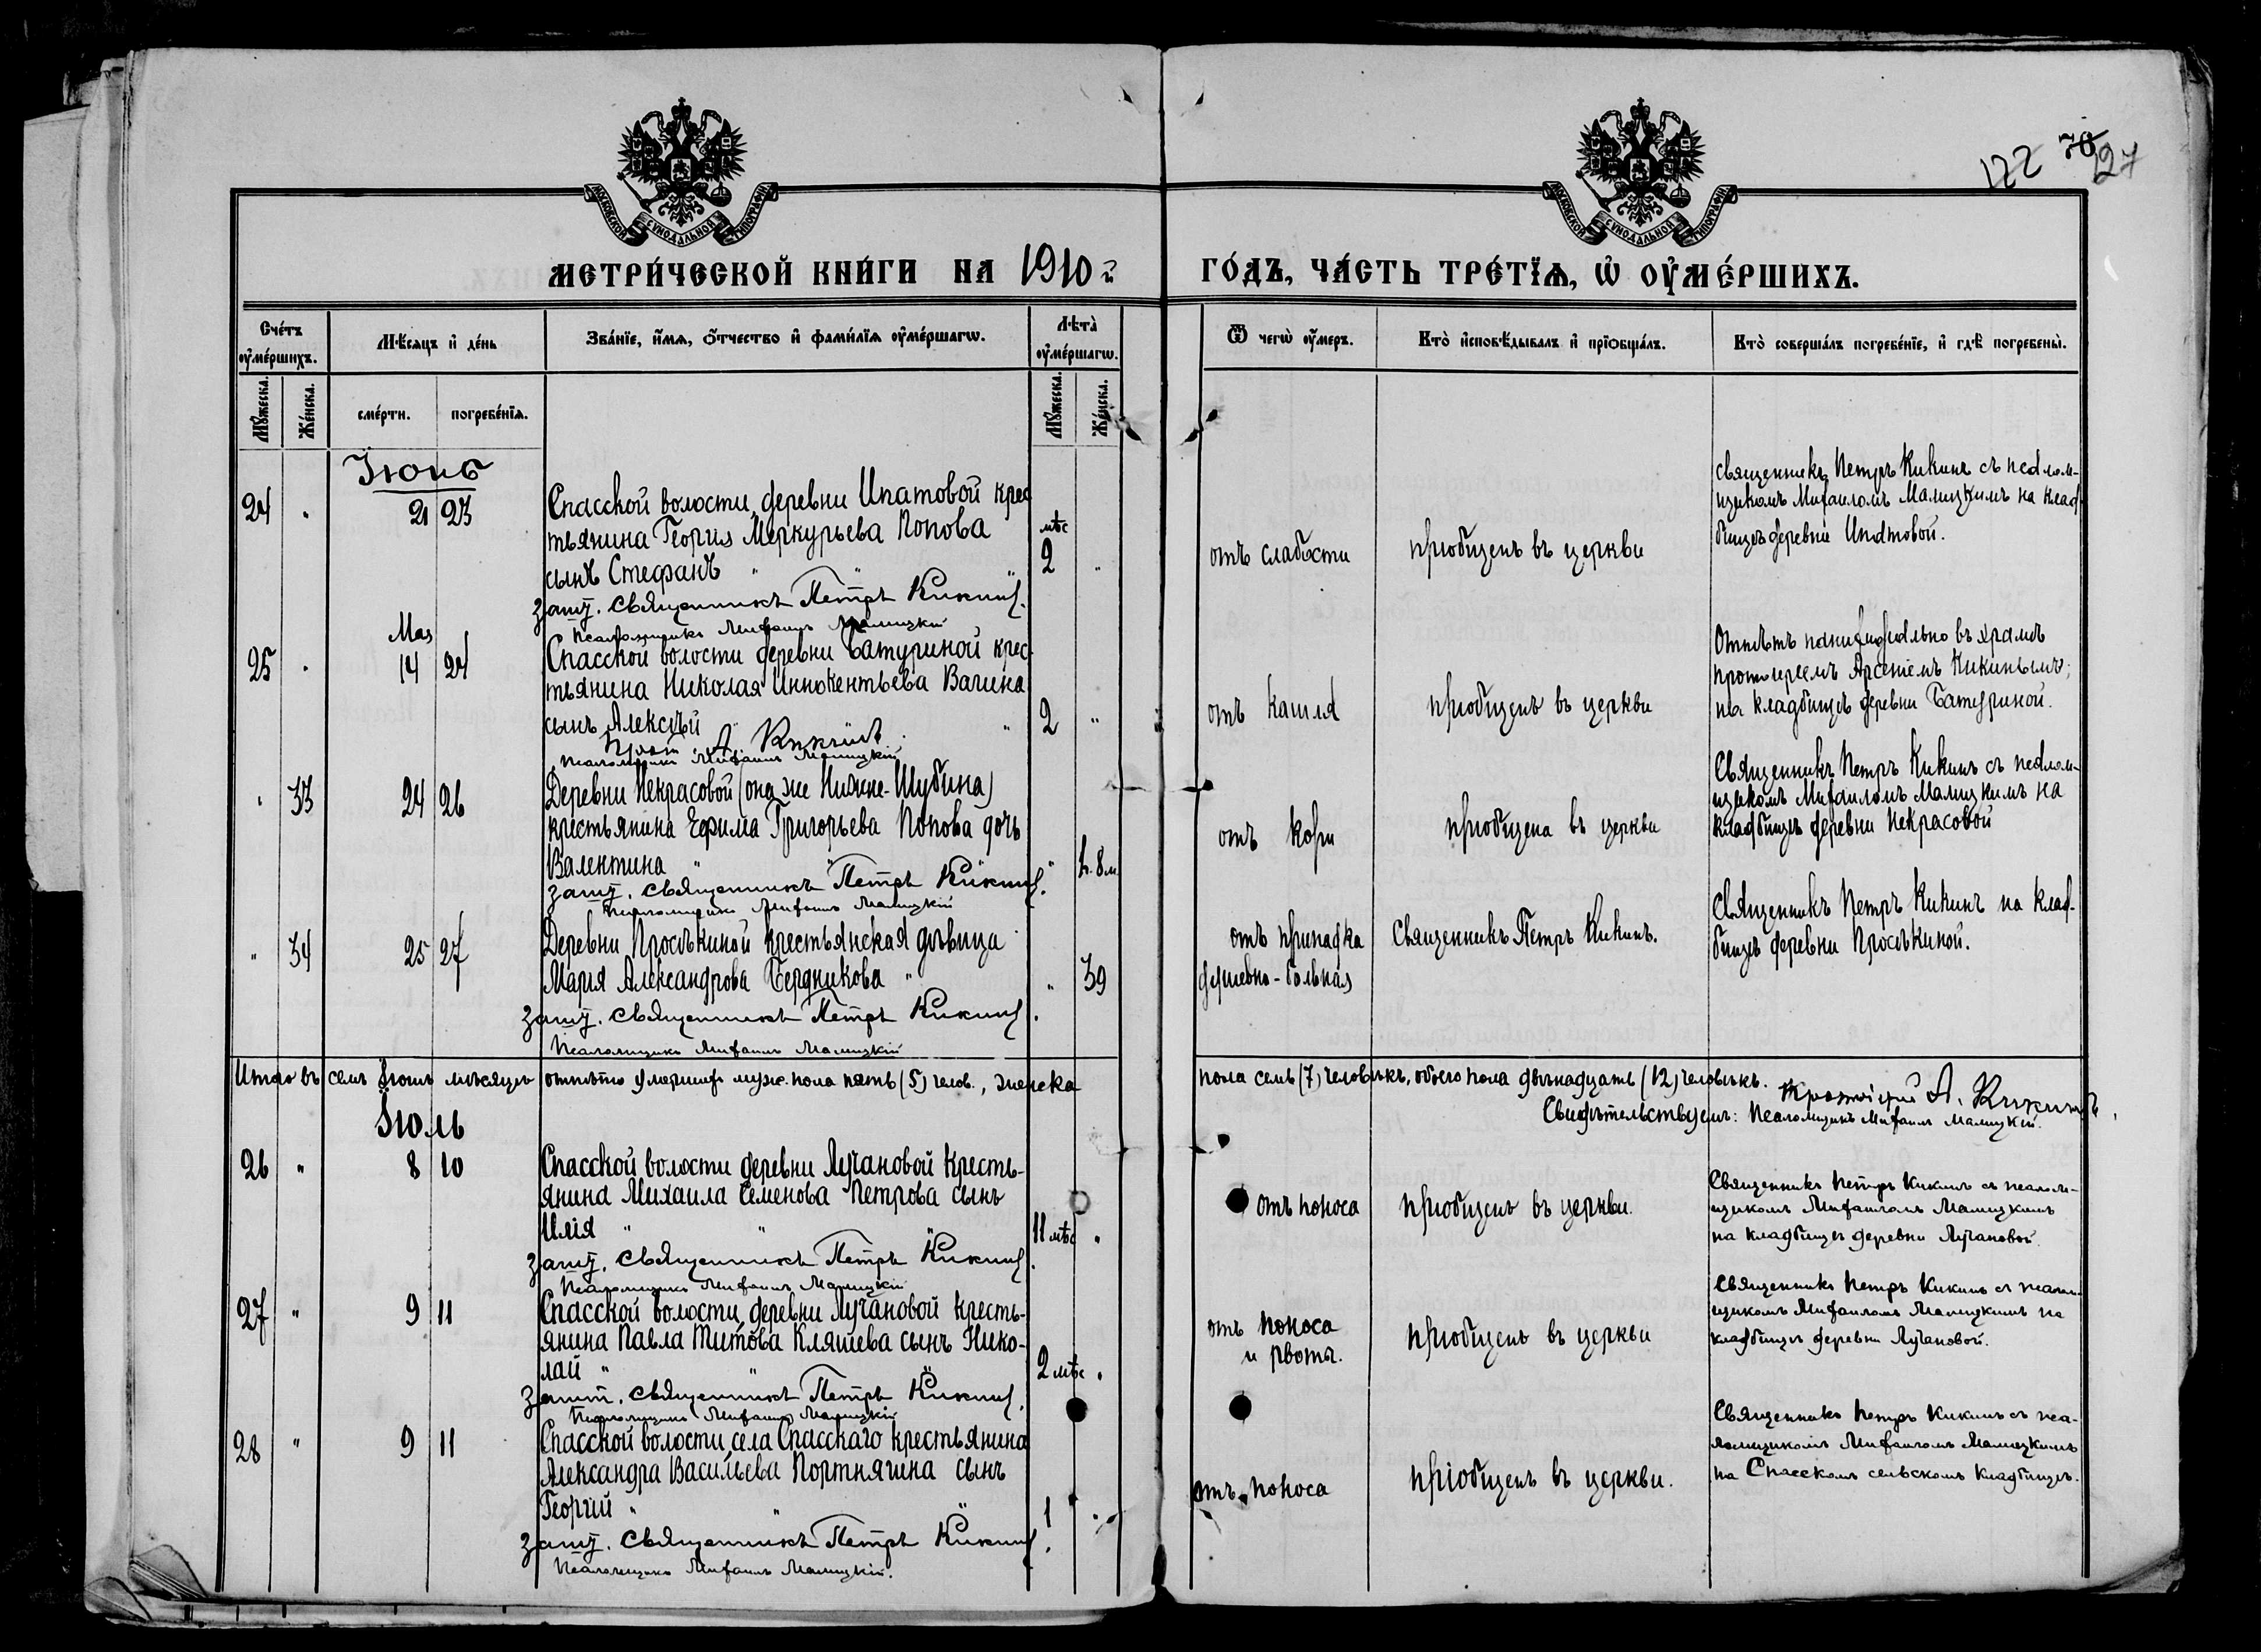 122 76 127
МОСКОВСКОЙ СѴНОДАЛЬНОЙ ТИПОГРАФІИ
МОСКОВСКОЙ СѴНОДАЛЬНОЙ ТИПОГРАФІИ
МЕТРИ́ЧЕСКОЙ КНИ́ГИ НА 1910 г
ГО́ДЪ, ЧА́СТЬ ТРЕ́ТЇѦ, Ѽ ОУ҆МЕ́РШИХЪ.
Сче́тъ оу҆ме́ршихъ.
Мѣ́сяцъ и҆ де́нь
Зва́нїе, и҆́мѧ, ѻ҆́тчество и҆ фами́лїѧ оу҆ме́ршагѡ.
Лѣ́та оу҆ме́ршагѡ.
Ѿ чегѡ̀ оу҆́меръ.
Кто̀ и҆сповѣ́дывалъ и҆ прїѡбща́лъ.
Кто̀ соверша́лъ погребе́нїе, и҆ гдѣ̀ погребены̀.
Мꙋ́жеска. Же́нска. сме́рти. погребе́нїѧ. Мꙋ́жеска. Же́нска.
Іюнь
24 " 21 23
Спасской волости, деревни Ипатовой крес
тьянина Георгія Меркурьева Попова
сынъ Стефанъ " "
мѣс
2 "
зашт. Священникъ Петръ Кикинъ.
Псаломщикъ Михаилъ Малицкій
отъ слабости
пріобщенъ въ церкви
Священникъ Петръ Кикинъ съ псалом-
щикомъ Михаиломъ Малицкимъ на клад-
бищѣ деревни Ипатовой.
Мая
25 " 14 24
Спасской волости деревни Батуриной крес-
тьянина Николая Иннокентьева Вагина
сынъ Алексѣй " "
2 "
Прот. А. Кикинъ.
Псаломщикъ Михаилъ Малицкій
отъ кашля
пріобщенъ въ церкви
Отпѣтъ въ храмѣ
протоіереемъ Арсеніемъ Кикинымъ;
на кладбищѣ деревни Батуриной.
" 33 24 26
Деревни Некрасовой (она же Нижне-Шубина)
крестьянина Ефима Григорьева Попова дочь
Валентина " "
" 8 м.
зашт. Священникъ Петръ Кикинъ.
Псаломщикъ Михаилъ Малицкій
отъ кори
пріобщена въ церкви
Священникъ Петръ Кикинъ съ псалом-
щикомъ Михаиломъ Малицкимъ на
кладбищѣ деревни Некрасовой
" 34 25 27
Деревни Просѣкиной крестьянская дѣвица
Марія Александрова Бердникова "
" 39
зашт. Священникъ Петръ Кикинъ.
Псаломщикъ Михаилъ Малицкій
отъ припадка
душевно-больная
Священникъ Петръ Кикинъ.
Священникъ Петръ Кикинъ на клад-
бищѣ деревни Просѣкиной.
Итого въ семъ Іюнѣ мѣсяцѣ отпѣто умершихъ муж. пола пять (5) челов., женска
пола семь (7) человѣкъ, обоего пола двѣнадцать (12) человѣкъ.
Протоіерей А. Кикинъ
Свидѣтельствуемъ: Псаломщикъ Михаилъ Малицкій.
Іюль
26 " 8 10
Спасской волости деревни Лучановой кресть-
янина Михаила Семенова Петрова сынъ
Илія " "
11 мѣс "
зашт. Священникъ Петръ Кикинъ.
Псаломщикъ Михаилъ Малицкій
отъ поноса
пріобщенъ въ церкви.
Священникъ Петръ Кикинъ съ псалом-
щикомъ Михаиломъ Малицкимъ
на кладбищѣ деревни Лучановой.
27 " 9 11
Спасской волости, деревни Лучановой кресть-
янина Павла Титова Кляшева сынъ Нико-
лай " "
2 мѣс "
зашт. Священникъ Петръ Кикинъ.
Псаломщикъ Михаилъ Малицкій
отъ поноса
и рвоты.
пріобщенъ въ церкви
Священникъ Петръ Кикинъ съ псалом-
щикомъ Михаиломъ Малицкимъ на
кладбищѣ деревни Лучановой.
28 " 9 11
Спасской волости, села Спасскаго крестьянина
Александра Васильева Портнягина сынъ
Георгій " "
1 "
зашт. Священникъ Петръ Кикинъ.
Псаломщикъ Михаилъ Малицкій.
отъ поноса
пріобщенъ въ церкви.
Священникъ Петръ Кикинъ съ пса-
ломщикомъ Михаиломъ Малицкимъ
на Спасскомъ сельскомъ кладбищѣ.